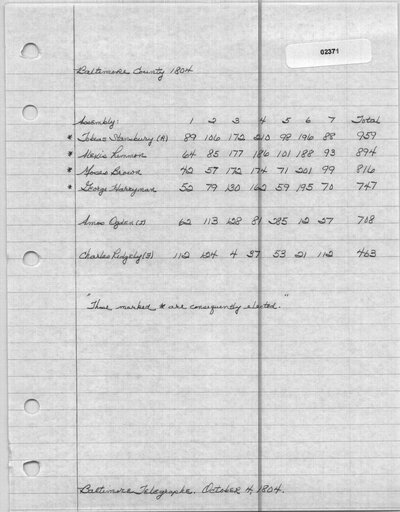 02371
Baltimore County 1804
Assembly: 1 2 3 4 5 6 7 Total
* Tobias Stansbury (R) 89 106 172 210 98 196 88 959
* Alexis Lemmon 64 85 177 186 101 188 93 894
* Moses Brown 42 57 172 174 71 201 99 816
* George Harryman 52 79 130 162 59 195 70 747
Amos Ogden (F) 62 113 128 81 285 12 27 708
Charles Ridgely (F) 112 124 4 37 53 21 112 463
"Those marked * are consequently elected."
Baltimore Telegraphe. October 4, 1804.